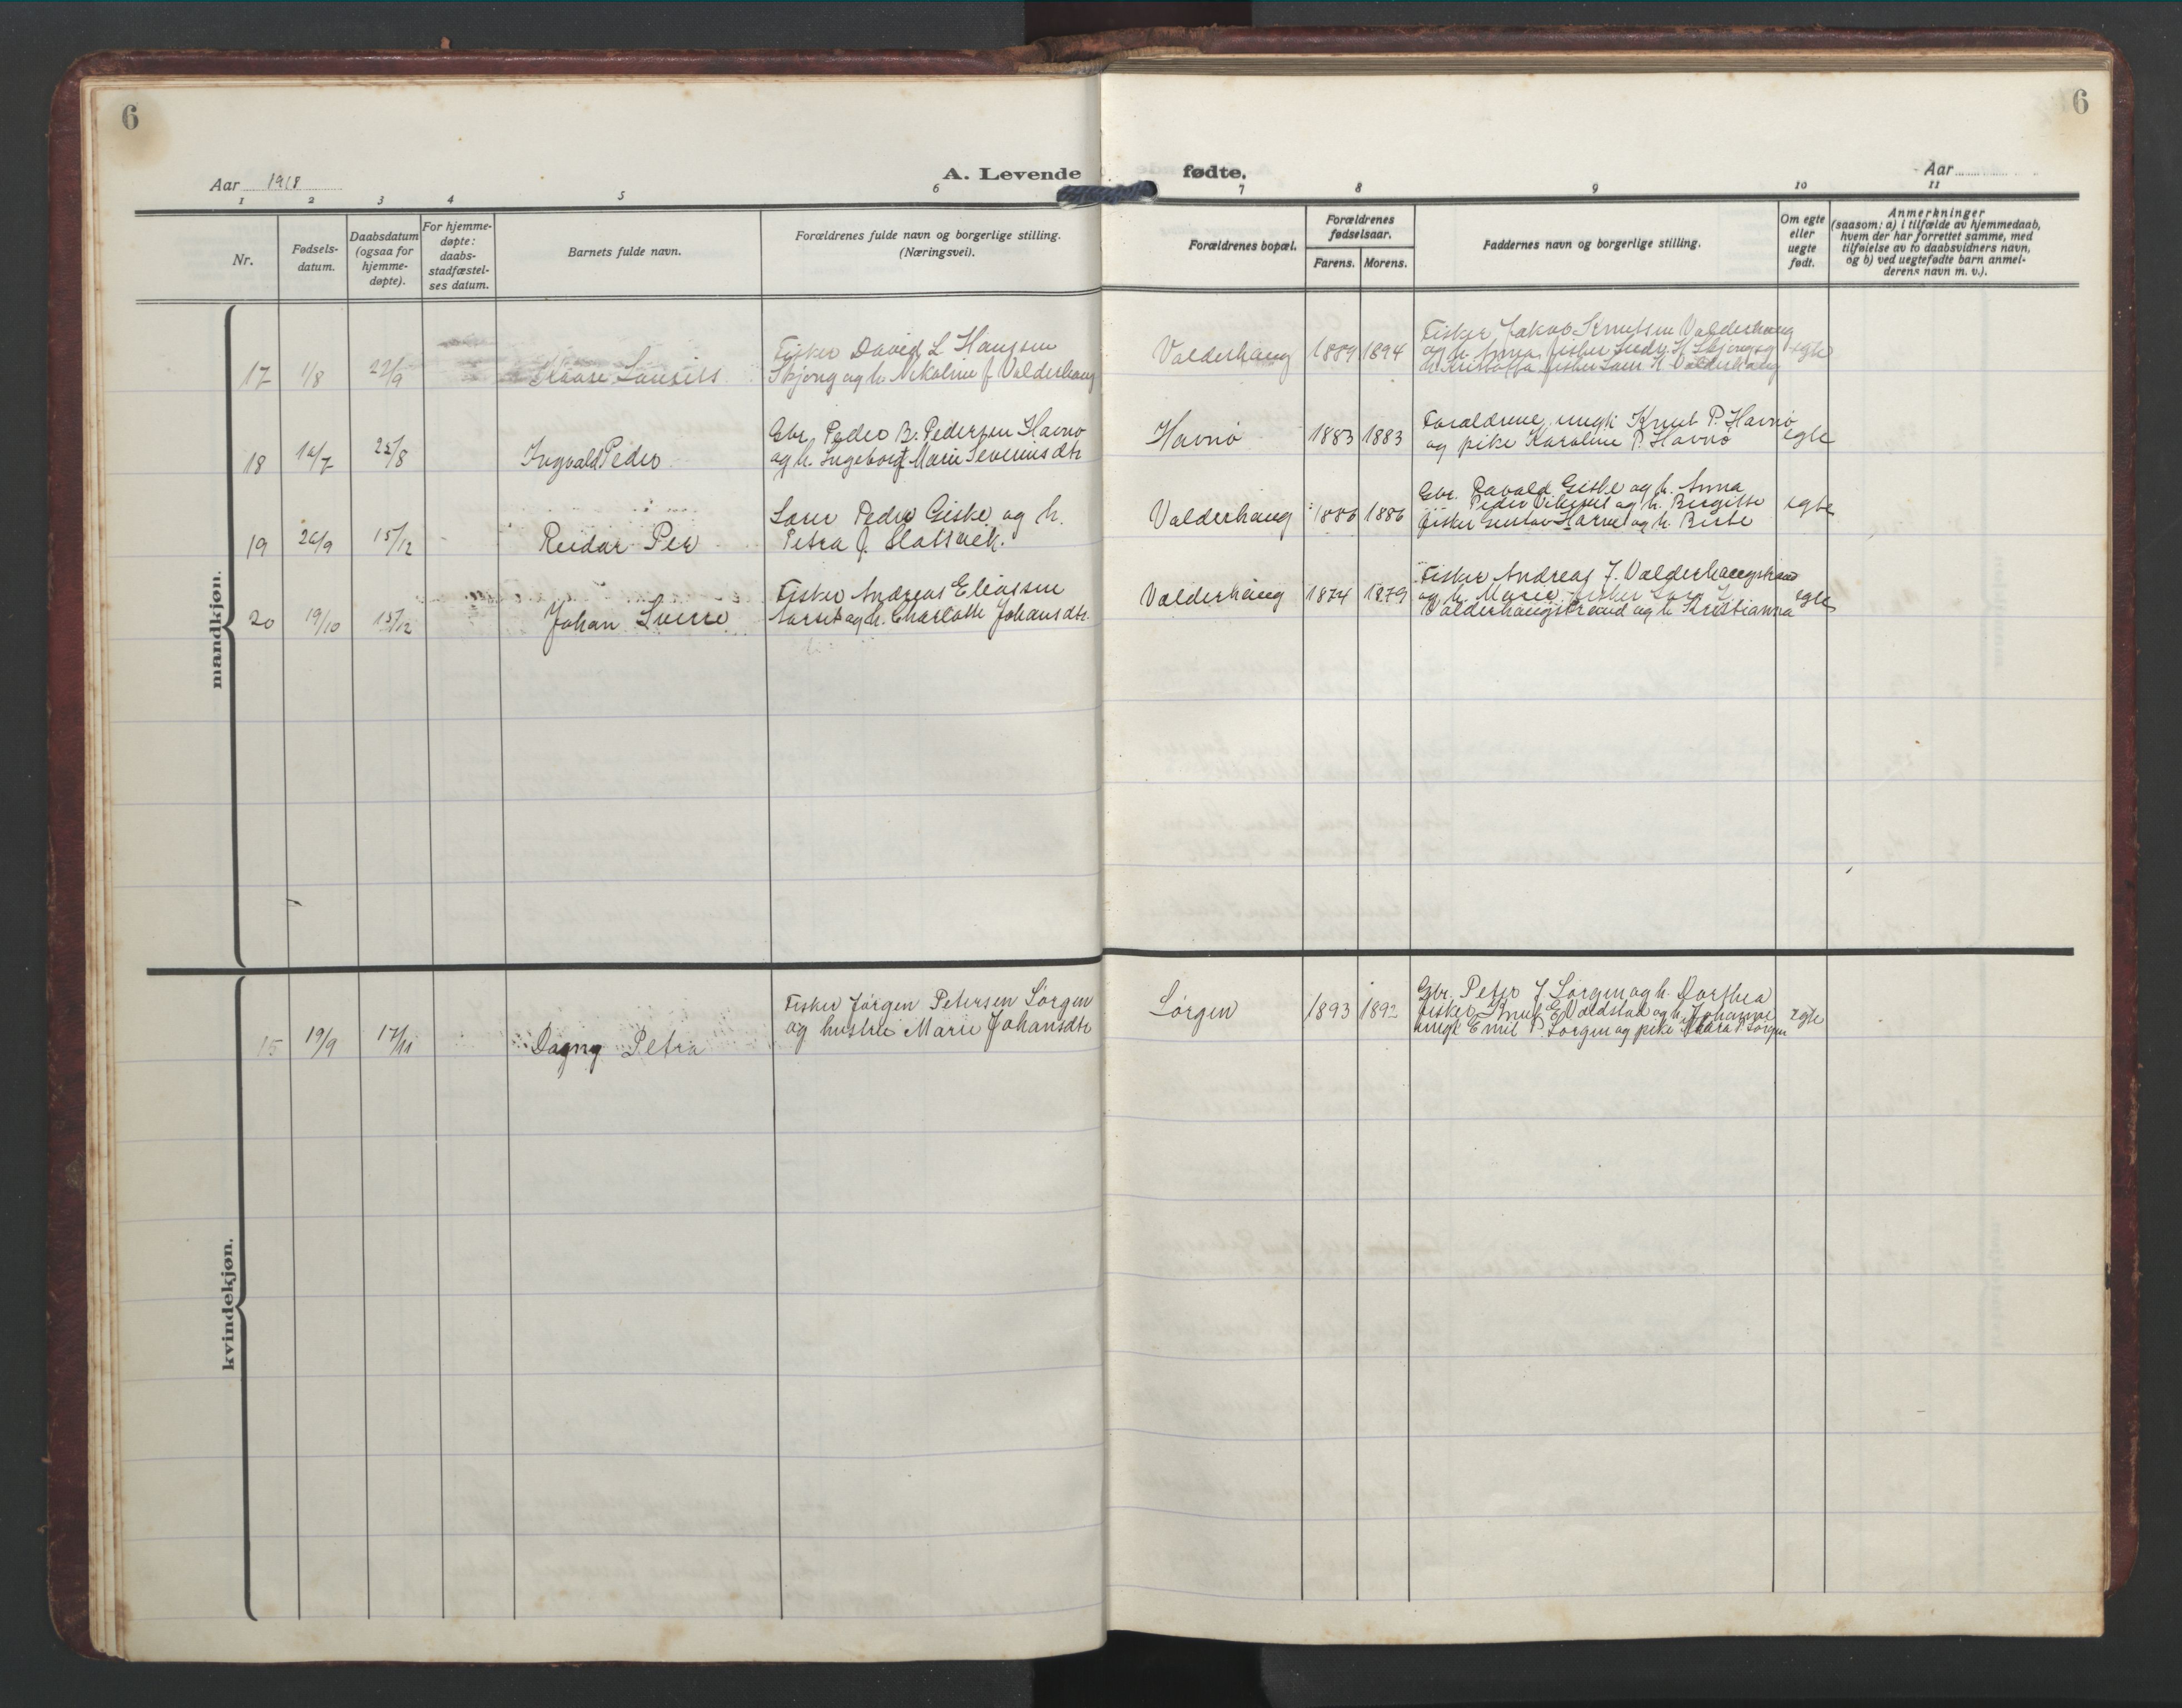 6
6
A. Levende fødte.
Aar 1918
Aar
1 2 3 4 5 6 7 8 9 10 11
Nr.
Fødsels-
datum.
Daabsdatum
(ogsaa for
hjemme-
døpte).
For hjemme-
døpte:
daabs-
stadfæstel-
ses datum.
Barnets fulde navn.
Forældrenes fulde navn og borgerlige stilling.
(Næringsvei).
Forældrenes bopæl.
Forældrenes
fødselsaar.
Farens. Morens.
Faddernes navn og borgerlige stilling.
Om egte
eller
uegte
født.
Anmerkninger
(saasom: a) i tilfælde av hjemmedaab,
hvem der har forrettet samme, med
tilføielse av to daabsvidners navn,
og b) ved uegtefødte barn anmel-
derens navn m. v.).
mandkjøn.
17 1/8 22/9 Kaare
Fisker David L Hansen
Skjong og h. Nikoline J Valderhaug
Valderhaug 1889 1894
Fisker Jakob Knutsen Valderhaug
og h. Anna, fisker H. Skjong og
h. fisker Lars K Valderhaug
egte
18 25/8 Ingvald Peder
Gbr. Peder B. Pedersen Havnø
og h. Ingeborg Marie Severinsdtr
Havnø 1883 1883
Forældrene, ungk. Knut P. Havnø
og pike Karoline P. Havnø
egte
19 26/9 15/12 Reidar Per
Lærer Peder Giske og h.
Petra J. Slatvik.
Valderhaug 1886 1886
Gbr. Ravald Giske og h. Anna
Peder og h. Birgitte
fisker Gustav og h. Berte
egte
20 19/10 15/12 Johan Sverre
Fisker Andreas Eliassen
og h. Charlotte Johansdtr.
Valderhaug 1874 1879
Fisker Andreas J. Valderhaugstrand
og h. Marie, fisker Lars L.
Valderhaugstrand og h. Kristianna
egte
kvindekjøn.
15 19/9 17/11 Dagny Petra
Fisker Jørgen Petersen Sørgen
og hustru Marie Johansdtr
Sørgen 1893 1892
Gbr. Peter J Sørgen og h. Dorthea
fisker Knut E og h. Johanne
ungk Emil P. Sørgen og pike P Sørgen
egte